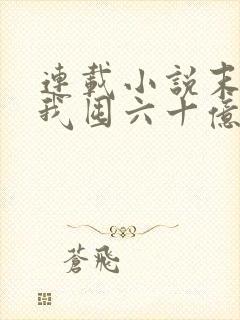 連載小說末
我囤六十億
蒼飛